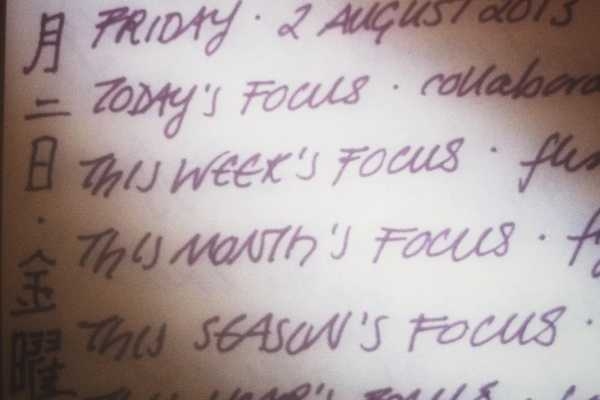 月二日・金曜
FRIDAY · 2 AUGUST 2013
TODAY'S FOCUS ·
THIS WEEK'S FOCUS ·
THIS MONTH'S FOCUS ·
THIS SEASON'S FOCUS ·